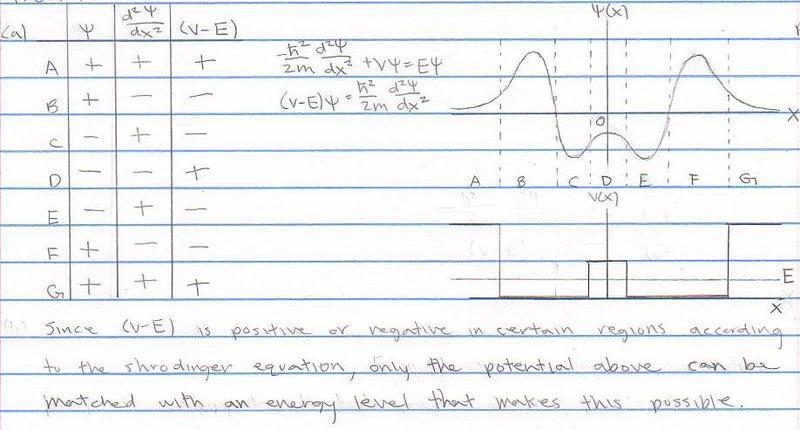 (a) ψ d²ψ/dx² (V-E)
A + + +
B + - -
C - + -
D - - +
E - + -
F + - -
G + + +
-ħ²/2m d²ψ/dx² + Vψ = Eψ
(V-E)ψ = ħ²/2m d²ψ/dx²
ψ(x)
O
X
A B C D E F G
V(x)
E
X
Since (V-E) is positive or negative in certain regions according
to the shrodinger equation, only the potential above can be
matched with an energy level that makes this possible.